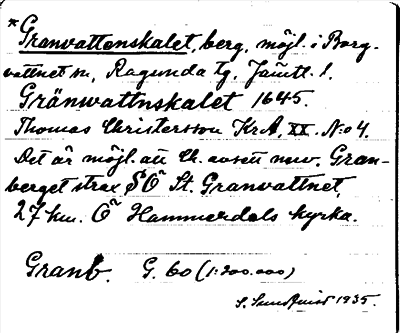 *Granvattenskalet, berg, möjl. i Borg-
vattnet sn, Ragunda tg, Jämtl. l.
Gränwattnskalet 1645.
Thomas Christersson KrA, XX. No 4.
Det är möjl. att Ch. avsett nuv. Gran-
berget strax SÖ St. Granvattnet,
27 km. Ö Hammerdals kyrka.
Granb. G. 60 (1:200.000)
S. Sundquist 1935.